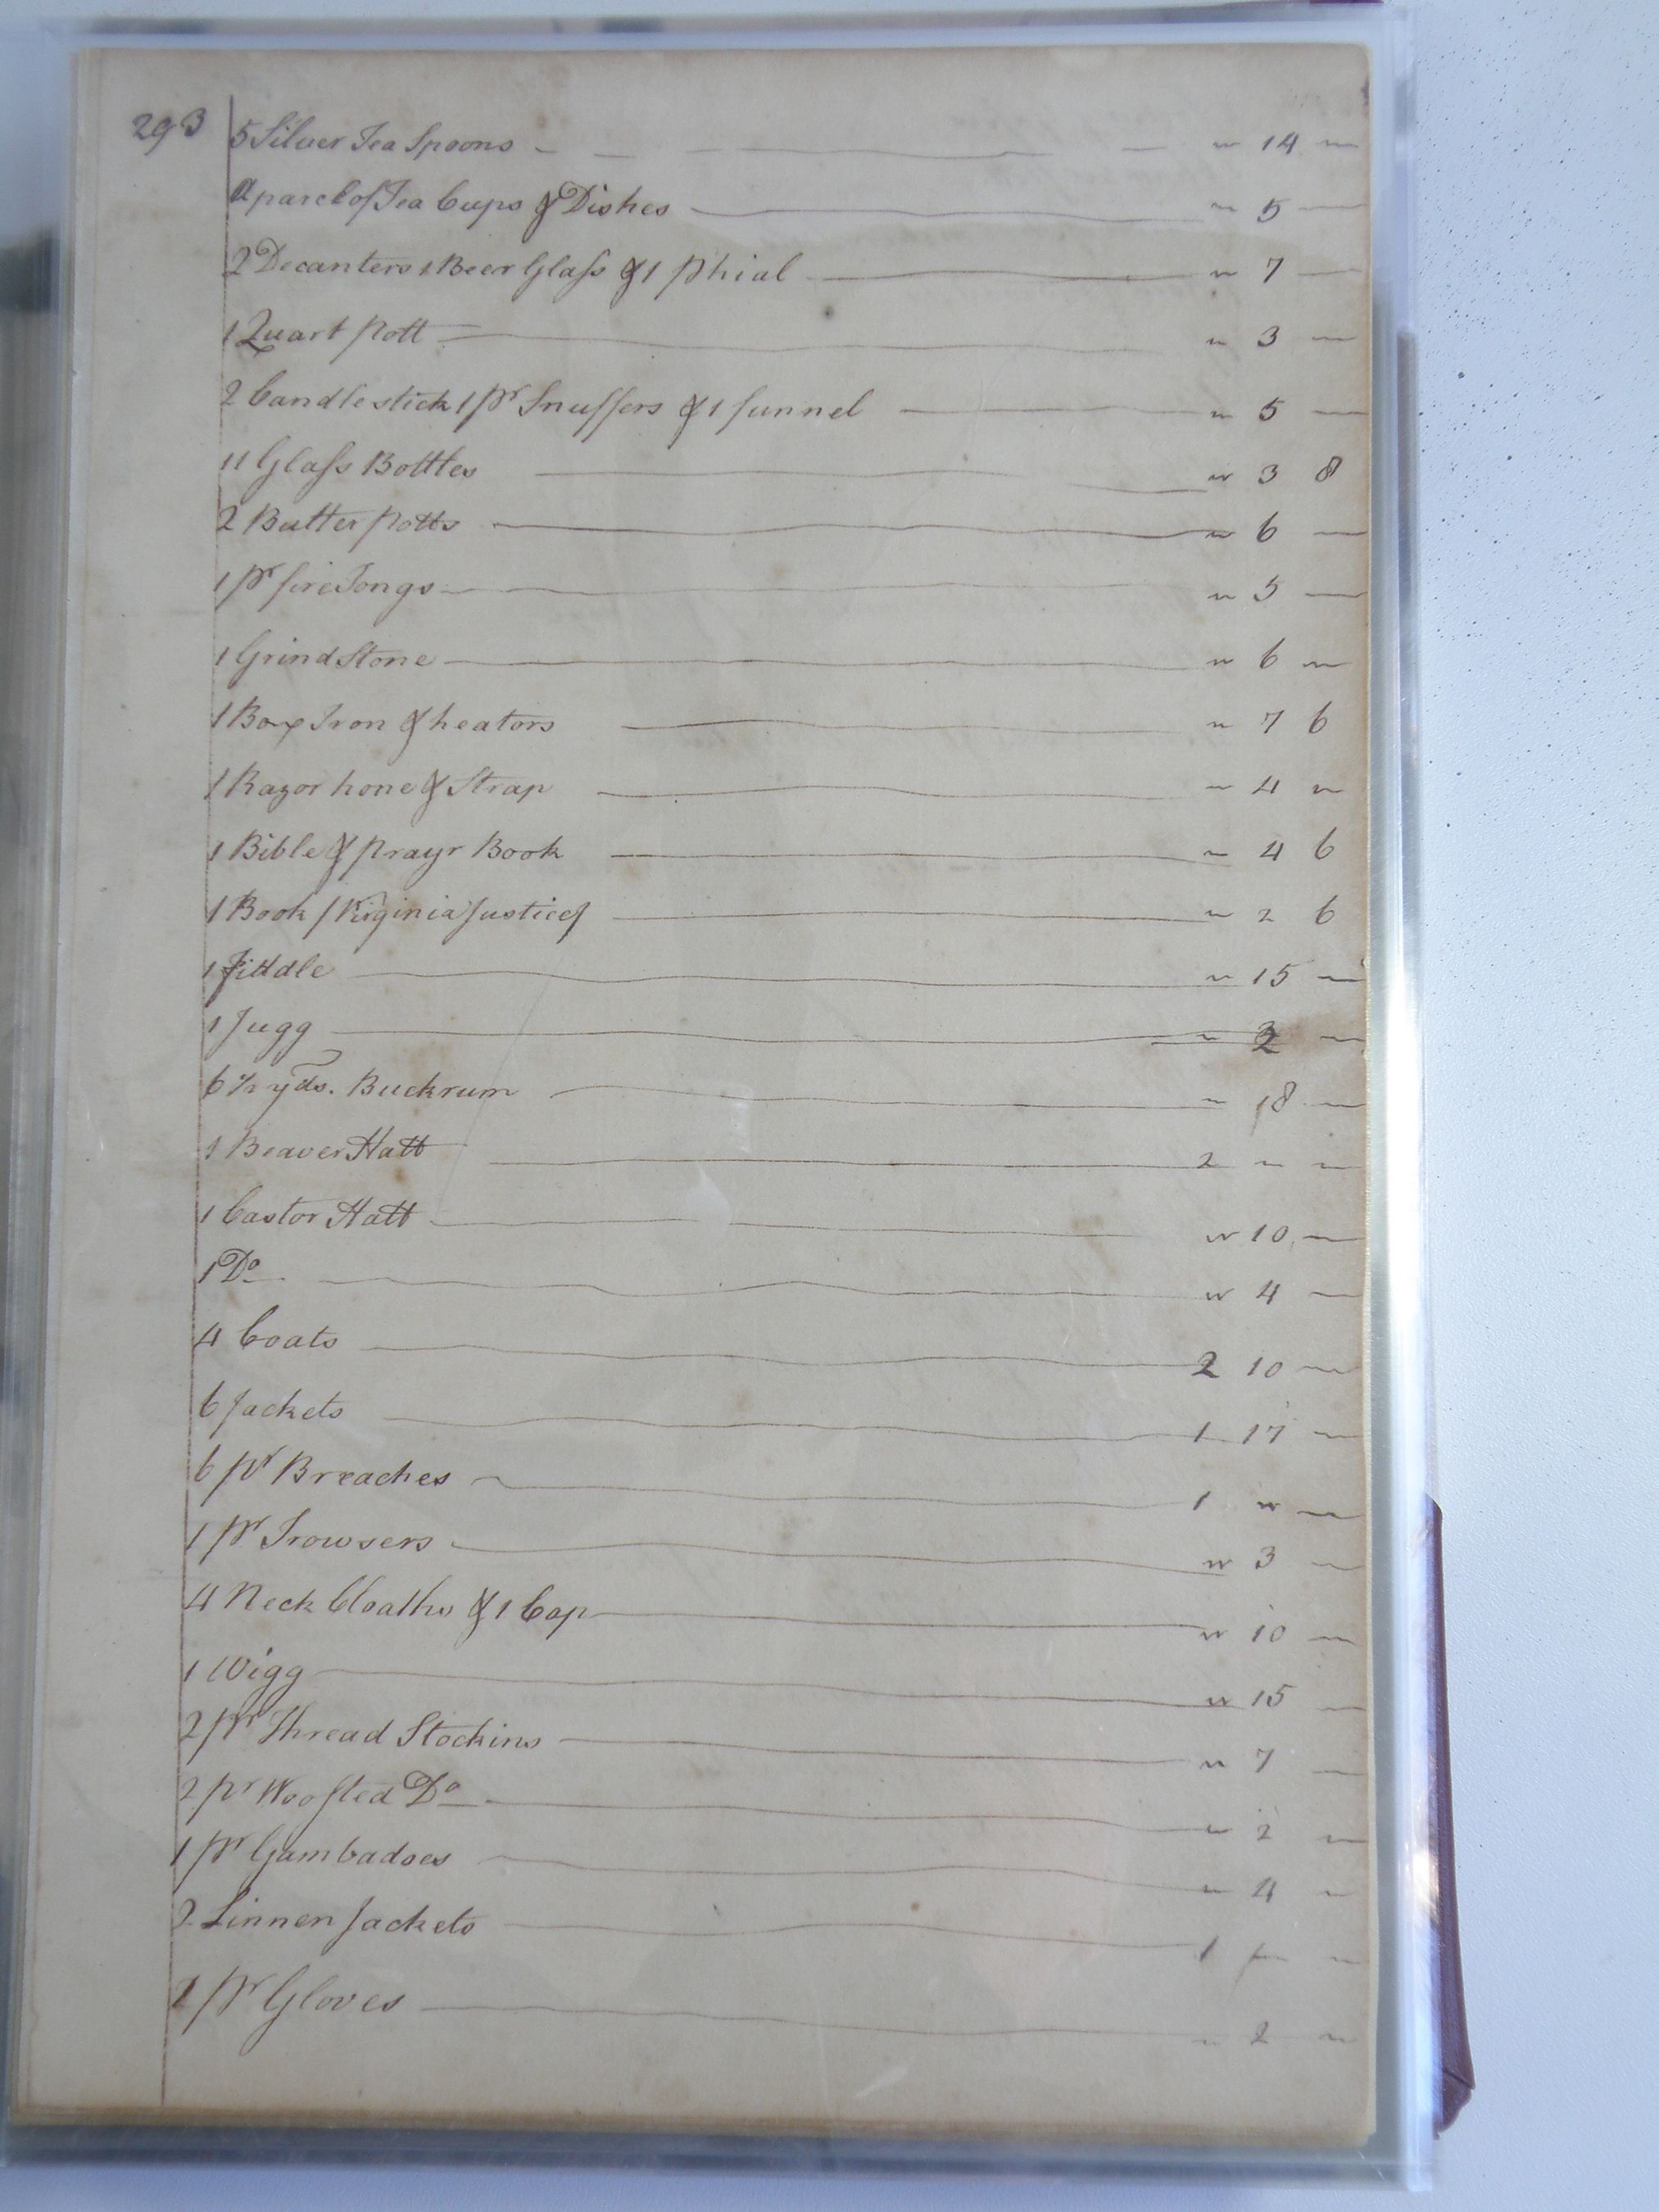 293
5 Silver Tea Spoons — — — — " 14 "
A parcel of Tea Cups & Dishes — " 5 —
2 Decanters 1 Beer Glass & 1 Phial — " 7 —
1 Quart Pott — " 3 —
2 Candlestick 1 pr Snuffers & 1 funnel — " 5 —
11 Glass Bottles — " 3 8
2 Butter Potts — " 6 —
1 pr fire Tongs — " 5 —
1 Grind Stone — " 6 "
1 Box Iron & heators — " 7 6
1 Razor hone & Strap — " 4 "
1 Bible & Prayr Book — " 4 6
1 Book /Virginia Justice/ — " 2 6
1 Fiddle — " 15 —
1 Jugg — " 2 "
6 ½ yds. Buckrum — " 18 —
1 Beaver Hatt — 2 " "
1 Castor Hatt — " 10 —
1 Do — " 4 —
4 Coats — 2 10 —
6 Jackets — 1 17 "
6 pr Breaches — 1 " —
1 pr Trowsers — " 3 —
4 Neck Cloaths & 1 Cap — " 10 —
1 Wigg — " 15 —
2 pr Thread Stockins — " 7 —
2 pr Woosted Do — " 2 "
1 pr Gambadoes — " 4 "
2 Linnen Jackets — 1 "
pr Gloves — " 2 "